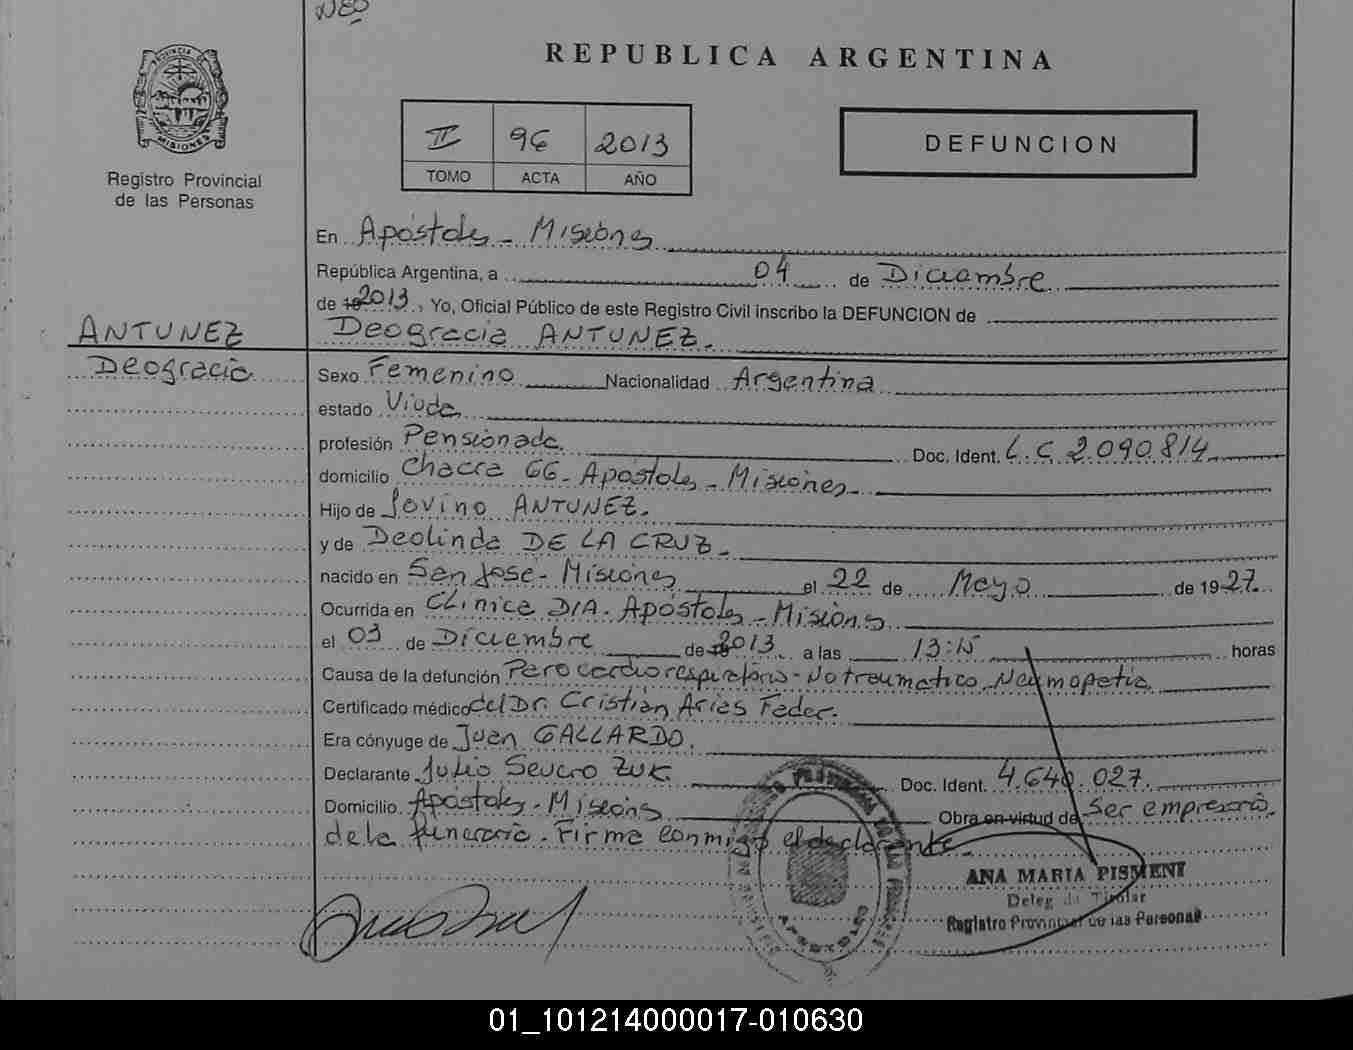 NEO
REPUBLICA ARGENTINA
PROVINCIA DE MISIONES
Registro Provincial
de las Personas
II 96 2013
TOMO ACTA AÑO
DEFUNCION
En Apóstoles - Misiones
República Argentina, a 04 de Diciembre
de 19 2013, Yo, Oficial Público de este Registro Civil inscribo la DEFUNCION de
ANTUNEZ
Deogracia
Deogracia ANTUNEZ.
Sexo Femenino Nacionalidad Argentina
estado Viuda
profesión Pensionada. Doc. Ident. L.C 2.090.814
domicilio Chacra 66 - Apóstoles - Misiones -
Hijo de Jovino ANTUNEZ.
y de Deolinda DE LA CRUZ -
nacido en San José - Misiones el 22 de Mayo de 1927.
Ocurrida en Clínica DIA. Apóstoles - Misiones
el 03 de Diciembre de 19 2013 a las 13:15 horas
Causa de la defunción Paro cardiorespiratorio - No traumatico Neumopatia
Certificado médico del Dr. Cristian Arias Feder.
Era cónyuge de Juan GALLARDO.
Declarante Julio Severo ZUK. Doc. Ident. 4.640.027.
Domicilio Apóstoles - Misiones Obra en virtud de Ser empresario
de la funeraria - Firma conmigo el declarante -
ANA MARIA PISMENI
Delegada Titular
Registro Provincial de las Personas
01_101214000017-010630